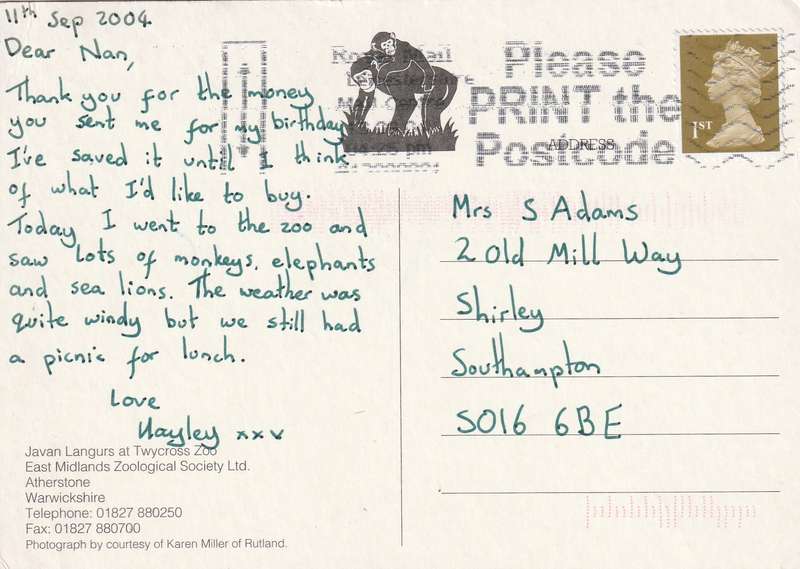 11th Sep 2004
Dear Nan,
Thank you for the money
you sent me for my birthday
I've saved it until I think
of what I'd like to buy.
Today I went to the zoo and
saw lots of monkeys, elephants
and sea lions. The weather was
quite windy but we still had
a picnic for lunch.
Love
Hayley xxx
Javan Langurs at Twycross Zoo
East Midlands Zoological Society Ltd.
Atherstone
Warwickshire
Telephone: 01827 880250
Fax: 01827 880700
Photograph by courtesy of Karen Miller of Rutland.
Royal Mail
pm
Please
PRINT the
Postcode
1ST
ADDRESS
Mrs S Adams
2 Old Mill Way
Shirley
Southampton
SO16 6BE